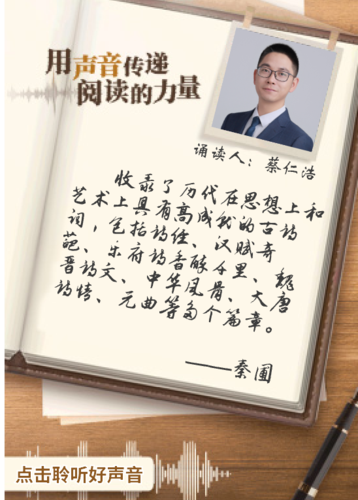 用声音传递
阅读的力量
诵读人：蔡仁浩
收录了历代在思想上和
艺术上具有高成就的古诗
词，包括诗经、汉赋奇
葩、乐府诗香醉千里、魏
晋诗文、中华风骨、大唐
诗情、元曲等多个篇章。
——秦圃
点击聆听好声音